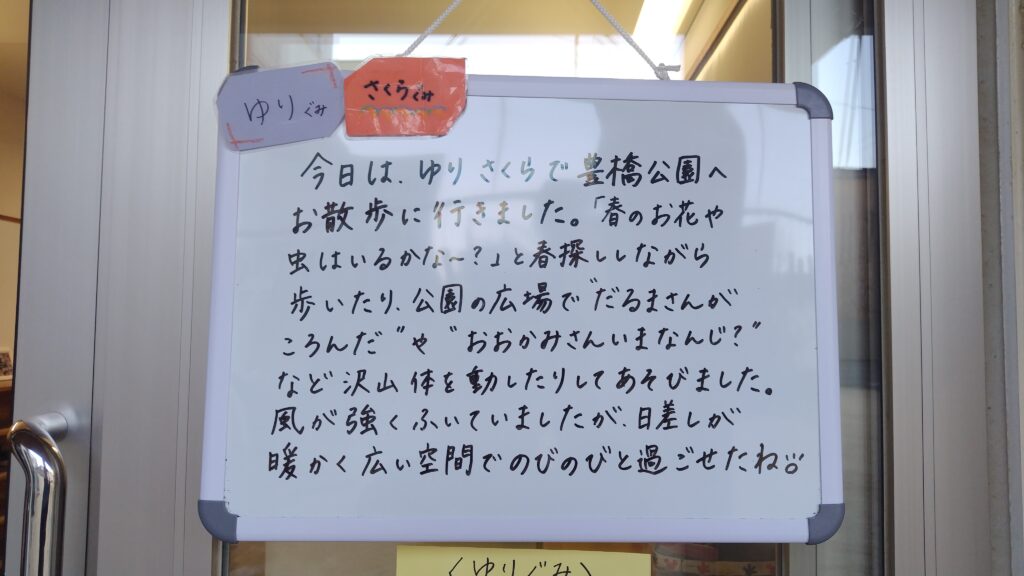 ゆりぐみ
さくらぐみ
今日は、ゆりさくらで豊橋公園へ
お散歩に行きました。「春のお花や
虫はいるかな～?」と春探ししながら
歩いたり、公園の広場で"だるまさんが
ころんだ"や"おおかみさんいまなんじ?"
など沢山体を動したりしてあそびました。
風が強くふいていましたが、日差しが
暖かく広い空間でのびのびと過ごせたね
<ゆりぐみ>